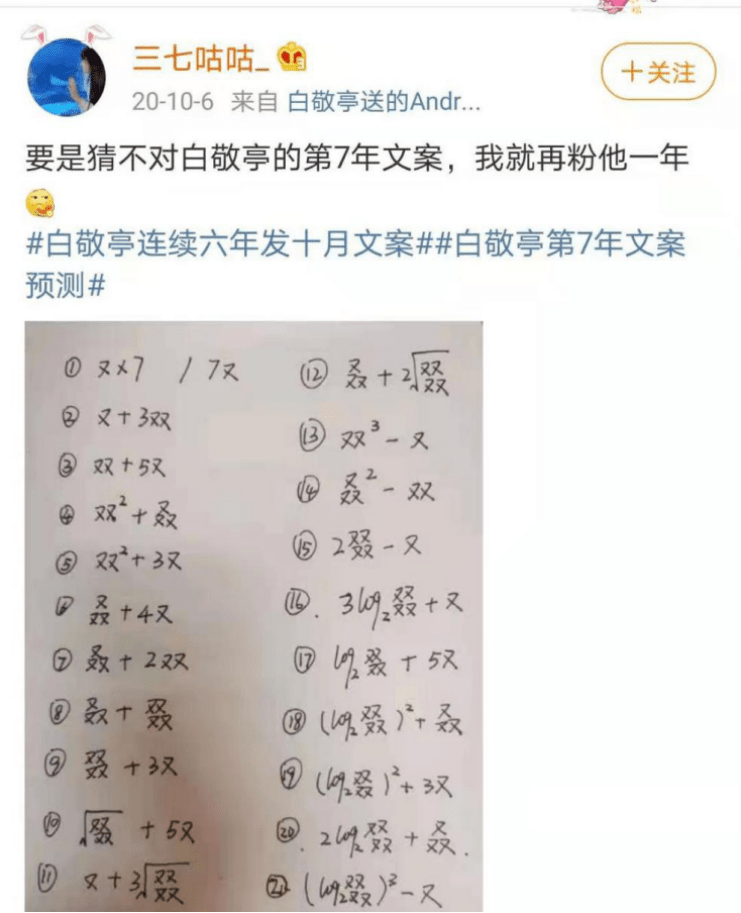 三七咕咕_
+关注
20-10-6 来自 白敬亭送的Andr...
要是猜不对白敬亭的第7年文案，我就再粉他一年
#白敬亭连续六年发十月文案##白敬亭第7年文案
预测#
① 又×7 / 7又
② 又+3双
③ 双+5又
④ 双²+叒
⑤ 双²+3又
⑥ 叒+4又
⑦ 叒+2双
⑧ 叒+叕
⑨ 叕+3又
⑩ √叕+5又
⑪ 又+3√叕
⑫ 叒+2√叕
⑬ 双³-又
⑭ 叒²-双
⑮ 2叕-又
⑯. 3log₂叕+又
⑰ log₂叕+5又
⑱ (log₂叕)²+叒
⑲ (log₂叕)²+3又
⑳. 2log₂叕+叒.
㉑ (log₂叕)³-又